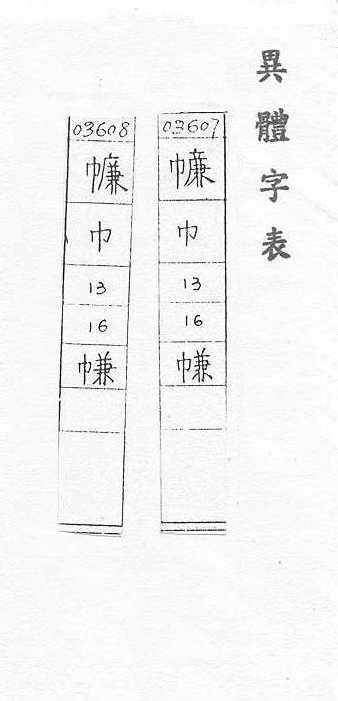 異體字表
03607
𢅏
巾
13
16
㡘
03608
𢅏
巾
13
16
㡘